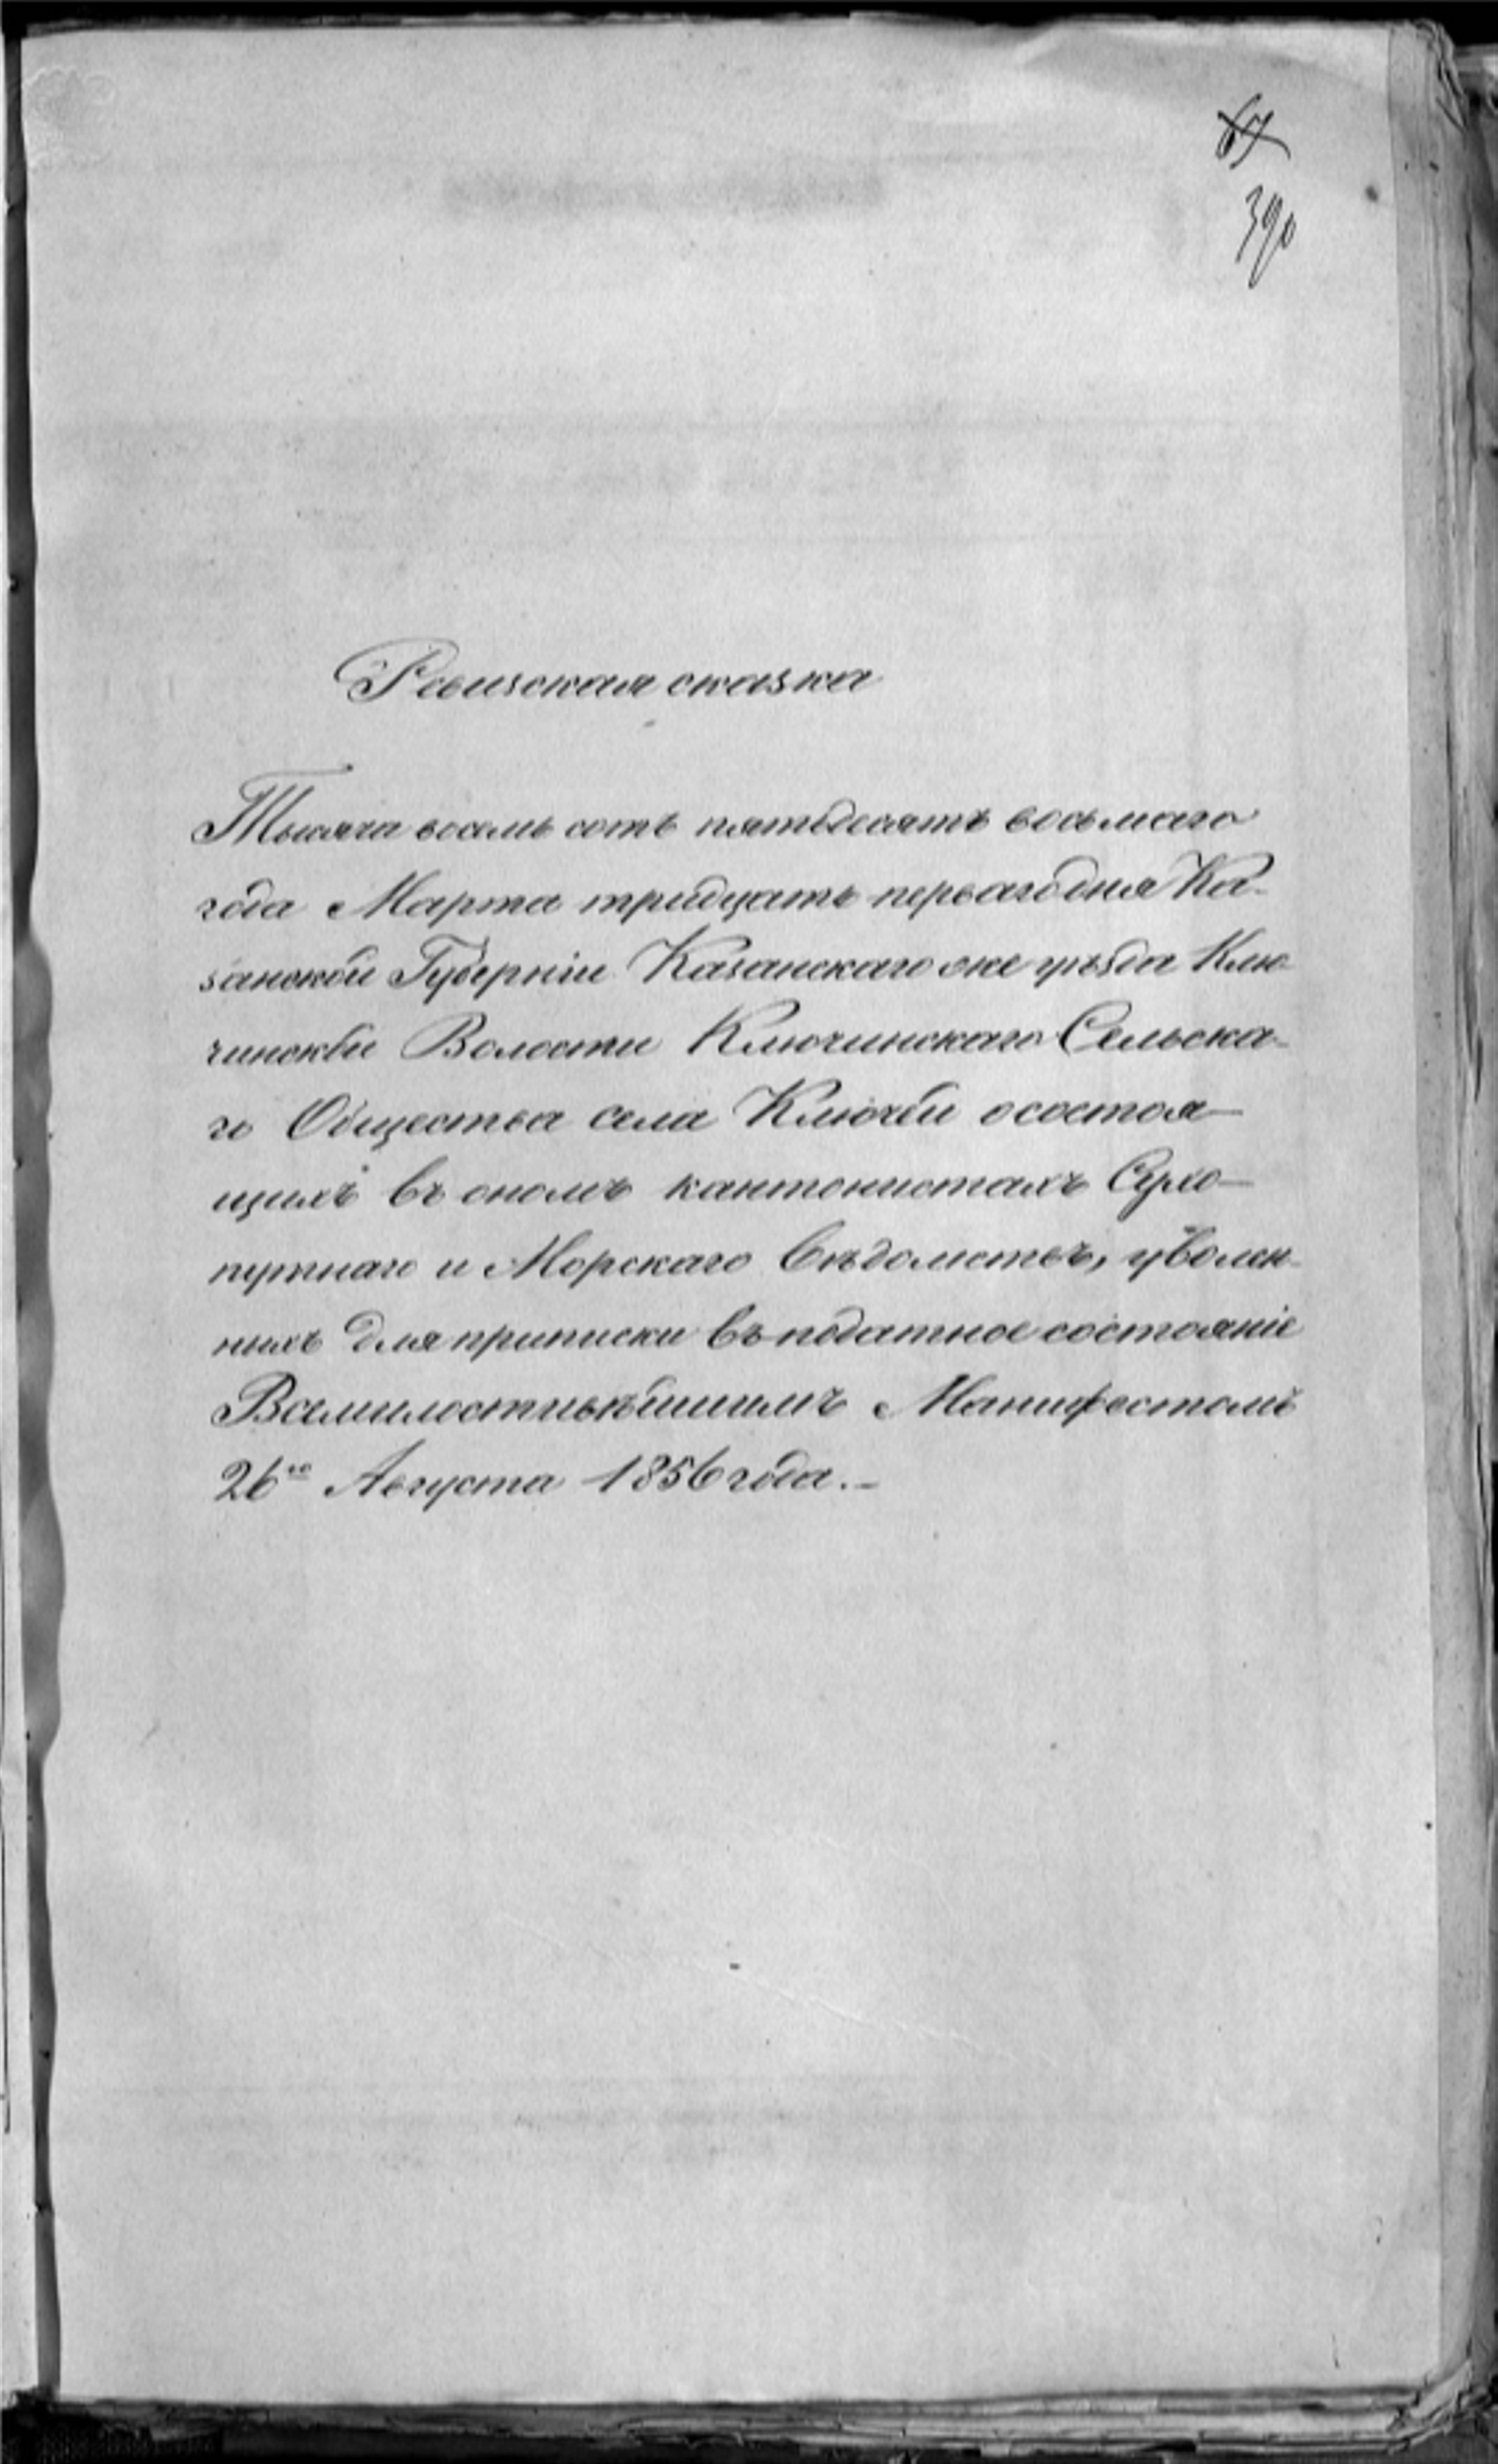 67
390
Ревизская сказка
Тысяча восемь сотъ пятьдесятъ восьмаго
года Марта тридцать перваго дня Ка-
занской Губерніи Казанскаго же уѣзда Клю-
чинской Волости Ключинскаго Сельска-
го Общества села Ключей о состоя-
щихъ въ ономъ кантонистахъ Сухо-
путнаго и Морскаго Вѣдомствъ, уволен-
ныхъ для приписки въ податное состояніе
Всемилостивѣйшимъ Манифестомъ
26го Августа 1856 года.-